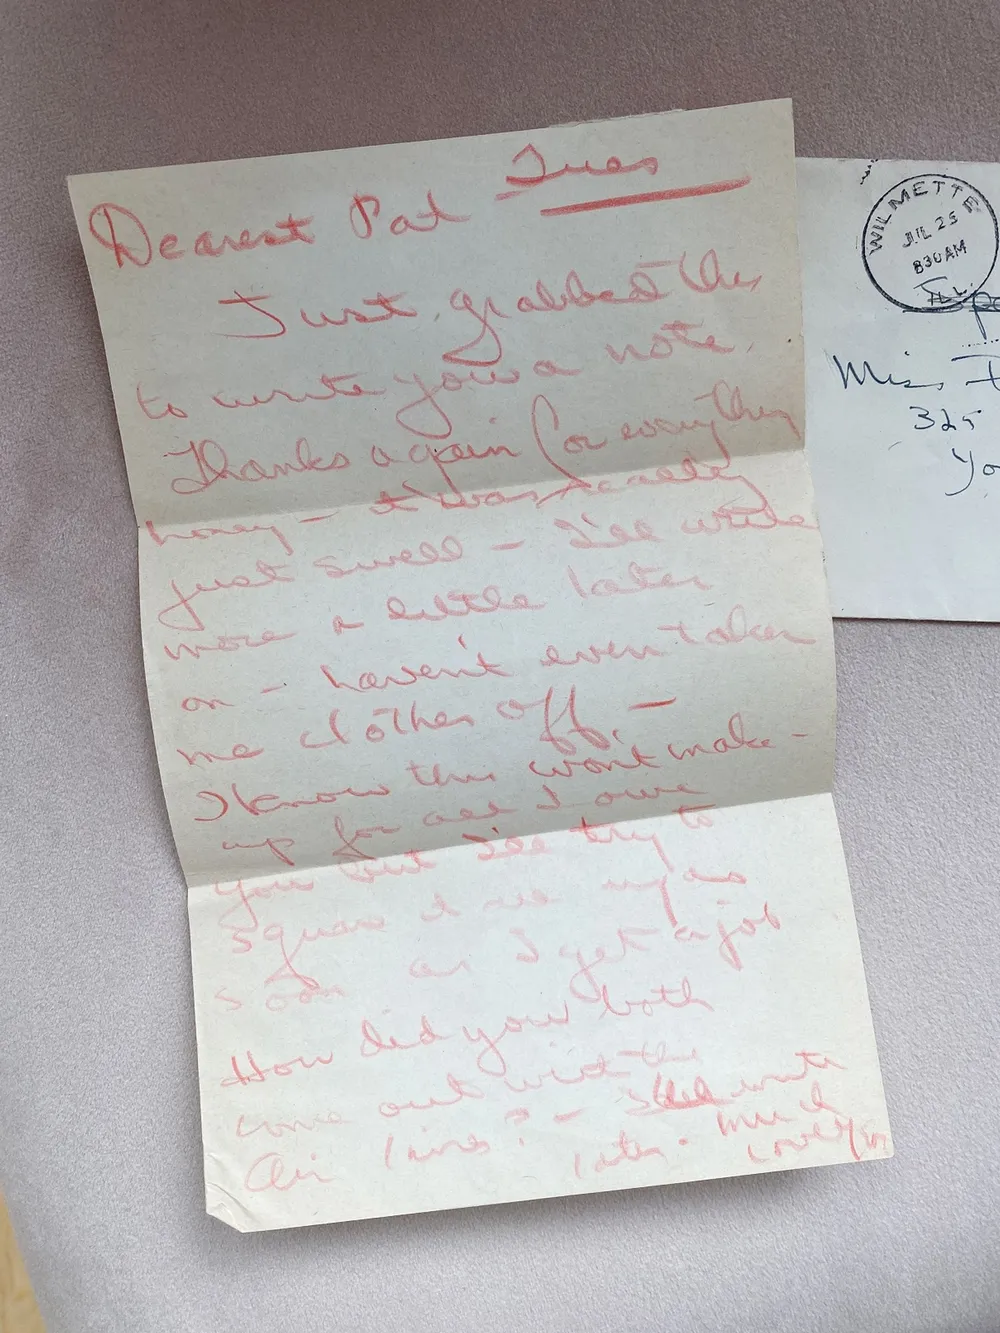 Tues
Dearest Pat
Just grabbed this
to write you a note.
Thanks again for everything
honey - it was really
just swell - I'll write
more a little later
on - haven't even taken
me clothes off -
I know this won't make
up for all I owe
you but I'll try to
square it all up as
soon as I get a job
How did you both
come out with the
Air lines? - I'll write
later. Much
love
WILMETTE
JUL 25
8 30 AM
ILL.
Miss
325
Yo